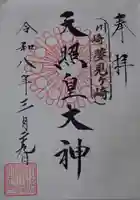 奉拝
川崎 夢見ヶ崎
天照皇大神
令和八年三月 日